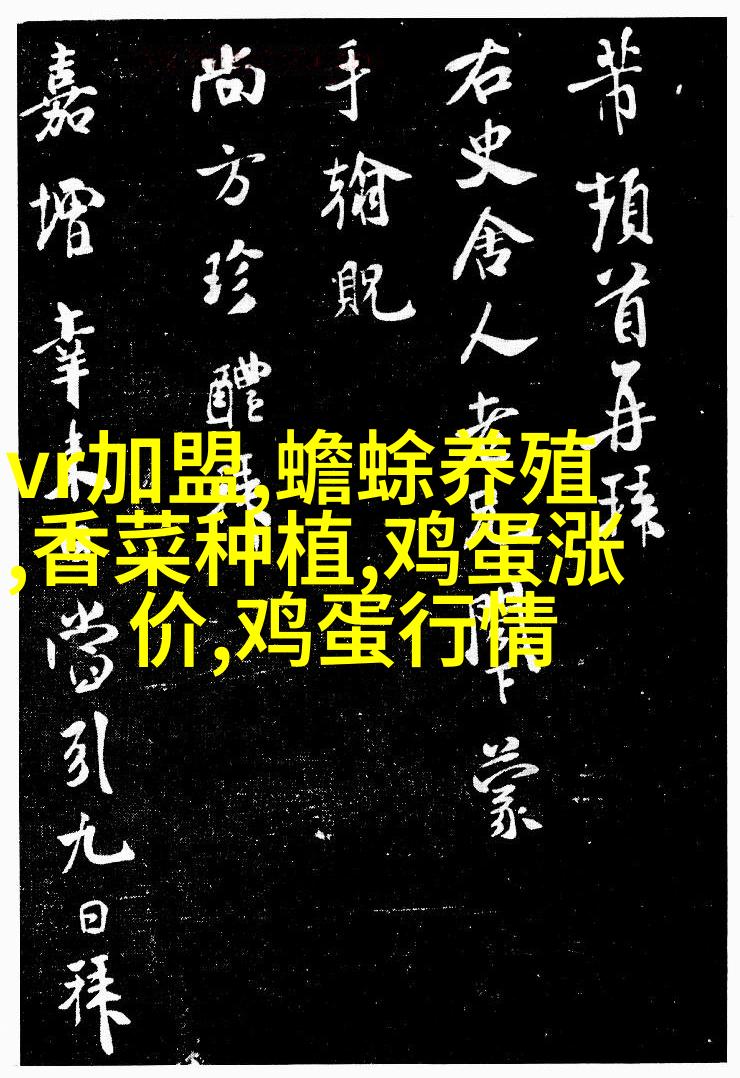 vr加盟,蟾蜍养殖
,香菜种植,鸡蛋涨
价,鸡蛋行情
芾頓首再拜
右史舍人老兄閣下蒙
手翰貺
尚方珍醴拜
嘉增幸未當引九日拜